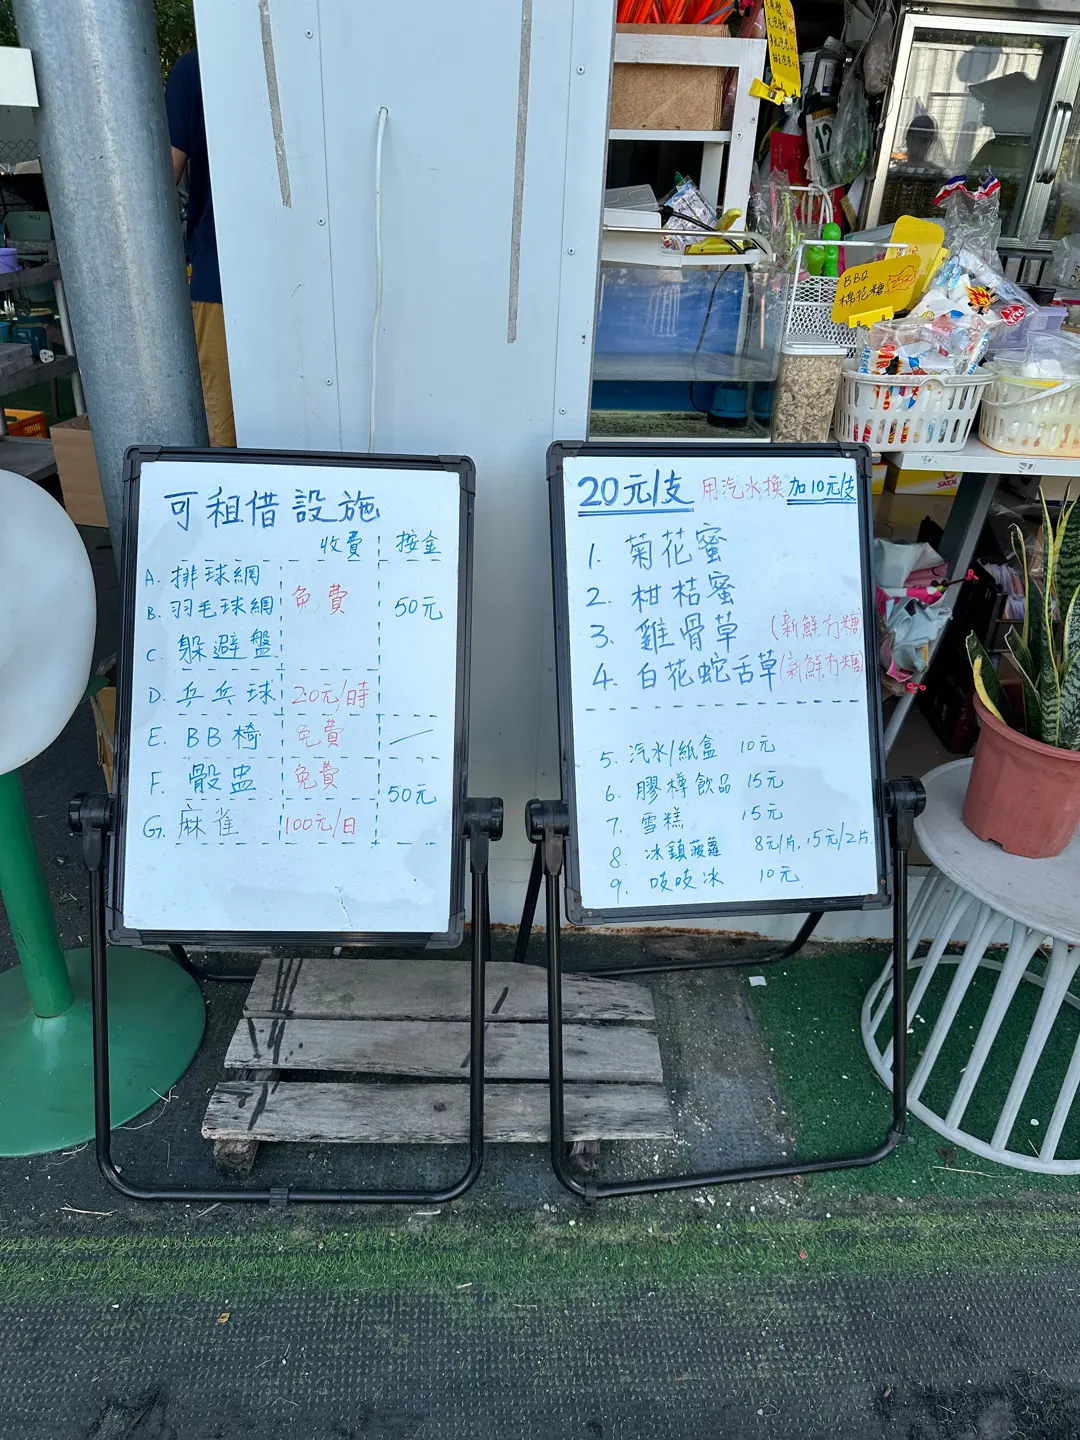 可租借設施
收費 按金
A. 排球網
B. 羽毛球網 免費 50元
C. 躲避盤
D. 乒乓球 20元/時
E. BB椅 免費 —
F. 骰盅 免費 50元
G. 麻雀 100元/日
20元/支 用汽水換加10元/支
1. 菊花蜜
2. 柑桔蜜
3. 雞骨草 (新鮮冇糖)
4. 白花蛇舌草(新鮮冇糖)
5. 汽水/紙盒 10元
6. 膠樽飲品 15元
7. 雪糕 15元
8. 冰鎮菠蘿 8元/片, 15元/2片
9. 吱吱冰 10元
BBQ
棉花糖 25元
12